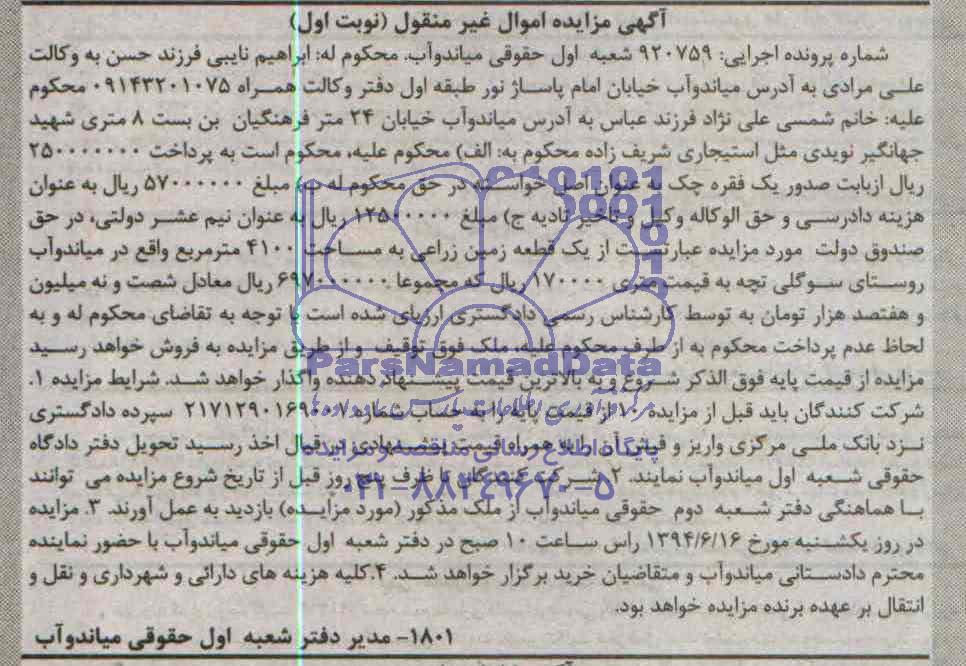 آگهی مزایده اموال غیر منقول (نوبت اول)
شماره پرونده اجرایی: ۹۲۰۷۵۹ شعبه اول حقوقی میاندوآب. محکوم له: ابراهیم نایبی فرزند حسن به وکالت
علی مرادی به آدرس میاندوآب خیابان امام پاساژ نور طبقه اول دفتر وکالت همراه ۰۹۱۴۳۲۰۱۰۷۵ محکوم
علیه: خانم شمسی علی نژاد فرزند عباس به آدرس میاندوآب خیابان ۲۴ متر فرهنگیان بن بست ۸ متری شهید
جهانگیر نویدی مثل استیجاری شریف زاده محکوم به: الف) محکوم علیه، محکوم است به پرداخت ۲۵۰۰۰۰۰۰۰۰
ریال ازبابت صدور یک فقره چک به عنوان اصل خواسته در حق محکوم له ب) مبلغ ۵۷۰۰۰۰۰۰ ریال به عنوان
هزینه دادرسی و حق الوکاله وکیل و تاخیر تادیه ج) مبلغ ۱۲۵۰۰۰۰۰ ریال به عنوان نیم عشر دولتی، در حق
صندوق دولت مورد مزایده عبارتست از یک قطعه زمین زراعی به مساحت ۴۱۰۰ مترمربع واقع در میاندوآب
روستای سوگلی تچه به قیمت متری ۱۷۰۰۰۰ ریال که مجموعا ۶۹۷۰۰۰۰۰۰ ریال معادل شصت و نه میلیون
و هفتصد هزار تومان به توسط کارشناس رسمی دادگستری ارزیای شده است با توجه به تقاضای محکوم له و به
لحاظ عدم پرداخت محکوم به از طرف محکوم علیه، ملک فوق توقیف و از طریق مزایده به فروش خواهد رسید
مزایده از قیمت پایه فوق الذکر شروع و به بالاترین قیمت پیشنهاد دهنده واگذار خواهد شد. شرایط مزایده ۱.
شرکت کنندگان باید قبل از مزایده ۱۰٪ از قیمت پایه را به حساب شماره ۲۱۷۱۲۹۰۱۶۹۰۰۷ سپرده دادگستری
نزد بانک ملی مرکزی واریز و فیش آن را به همراه قیمت پیشنهادی در قبال اخذ رسید تحویل دفتر دادگاه
حقوقی شعبه اول میاندوآب نمایند. ۲. شرکت کنندگان تا ظرف پنج روز قبل از تاریخ شروع مزایده می توانند
با هماهنگی دفتر شعبه دوم حقوقی میاندوآب از ملک مذکور (مورد مزایده) بازدید به عمل آورند. ۳. مزایده
در روز یکشنبه مورخ ۱۳۹۴/۶/۱۶ راس ساعت ۱۰ صبح در دفتر شعبه اول حقوقی میاندوآب با حضور نماینده
محترم دادستانی میاندوآب و متقاضیان خرید برگزار خواهد شد. ۴.کلیه هزینه های دارائی و شهرداری و نقل و
انتقال بر عهده برنده مزایده خواهد بود.
۱۸۰۱- مدیر دفتر شعبه اول حقوقی میاندوآب
ParsNamadData
پایگاه اطلاع رسانی مناقصه و مزایده
۰۲۱-۸۸۳۴۹۶۷۰-۵